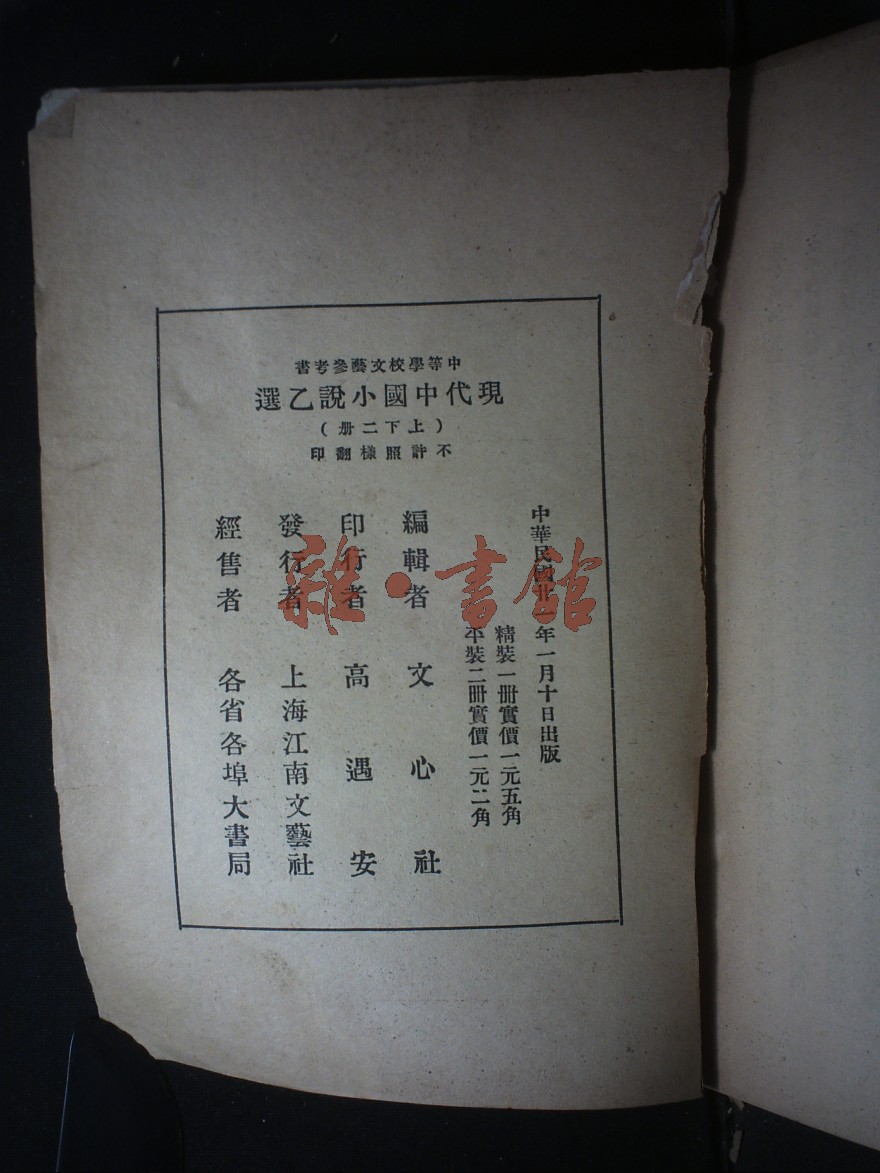 中等學校文藝參考書
現代中國小說乙選
（上下二册）
不許照樣翻印
中華民國廿一年一月十日出版
精裝一冊實價一元五角
平裝二冊實價一元二角
編輯者 文心社
印行者 高遇安
發行者 上海江南文藝社
經售者 各省各埠大書局
雜·書館